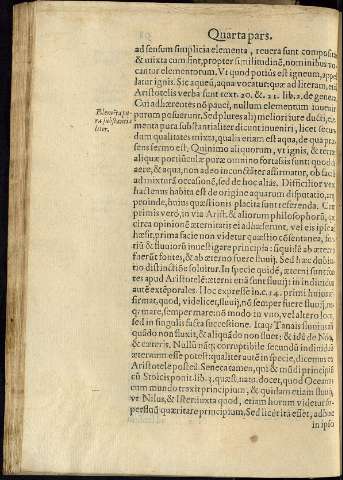 Quarta pars.
ad sensum simplicia elementa, revera sunt composita
& mixta cum sint, propter similitudinē, nominibus vo
cantur elementorum. Vt quod potiùs est igneum, appel
latur ignis. Sic aqueū, aqua vocatur, quæ ad literam, est
Aristotelis verba sunt text. 20. & 21. lib. 2. de genera
Cui adhærentes nō pauci, nullum elementum inveniri
purum posuerunt. Sed plures alij meliori iure ducti, ele
Elemēta pu
ra substantia
liter.
menta pura substantialiter dicunt inveniri, licet secun
dam qualitates mixta, qualis etiam est aqua, de qua præ
sens sermo est. Quinimo aliquorum, vt ignis, & terræ
aliquæ portiunculæ puræ omnino forsitā sunt: quod de
aere, & aqua, non adeo inconstāter affirmatur, ob faci
ad mixturā occasionē, sed de hoc alias. Difficilior vero
hactenus habita est de origine aquarum disputatio, 
proinde, huius quæstionis placita sunt referenda. 
primis vero, in via Arist. & aliorum philosophorū, 
circa opinionē æternitatis ei adhæserunt, vel eis ipse
hæsit, prima facie non videtur quæstio cōsentanea, 
riū & fluviorū investigare principia: si quidē ab æterno
fuerūt fontes, & ab æterno fuere fluvij. Sed hæc dubita
tio distinctiōe solvitur. In specie quidē, æterni sunt 
tes apud Aristotelē: æterni etiā sunt fluvij: in individuo
autē extēporales. Hoc expressè in. c. 14. primi 
firmat, quod, videlicet, fluvij, nō semper fuere fluvij, ne
q; mare, semper mare: nō modo in vno, vel altero loco,
sed in singulis facta successione. Itaq; Tanais fluvius ali
quādo non fluxit, & aliquādo non fluet: & idē de Nilo,
& cæteris. Nullū nāq; corruptibile secundū individuū
æternum esse potest: qualiter autē in specie, dicemus ex
Aristotele posteà. Senecam tamen, qui & mūdi principiū
cū Stoicis ponit. lib. 3. quæst. nata. docet, quod Oceanus
cum mundo traxit principium, & quidam etiam fluvij,
vt Nilus, & Ister: iuxta quod, etiam horum videtur su-
persluū quæritare principium. Sed licèt ita esset, adhuc
in ipso